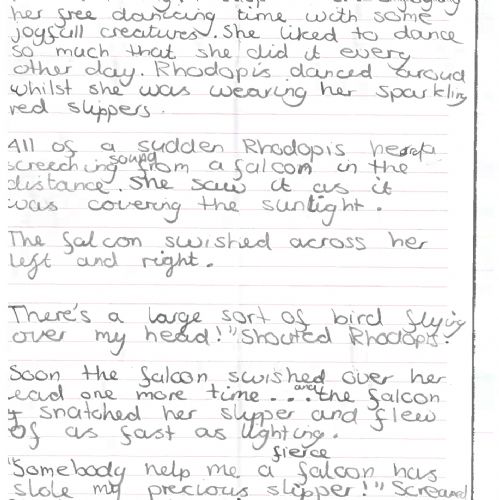 her free dancing time with some
joyfull creatures. She liked to dance
so much that she did it every
other day. Rhodopis danced aroud
whilst she was wearing her sparkling
red slippers.
All of a sudden Rhodopis
screeching sound from a falcon in the
distance. She saw it as it
was covering the sunlight.
The falcon swished across her
left and right.
There's a large sort of bird flying
over my head!" Shouted Rhodopis.
Soon the falcon swished over her
ead one more time... and the falcon
snatched her slipper and flew
of as fast as lightning.
fierce
"Somebody help me a falcon has
stole my precious slipper!" Scream